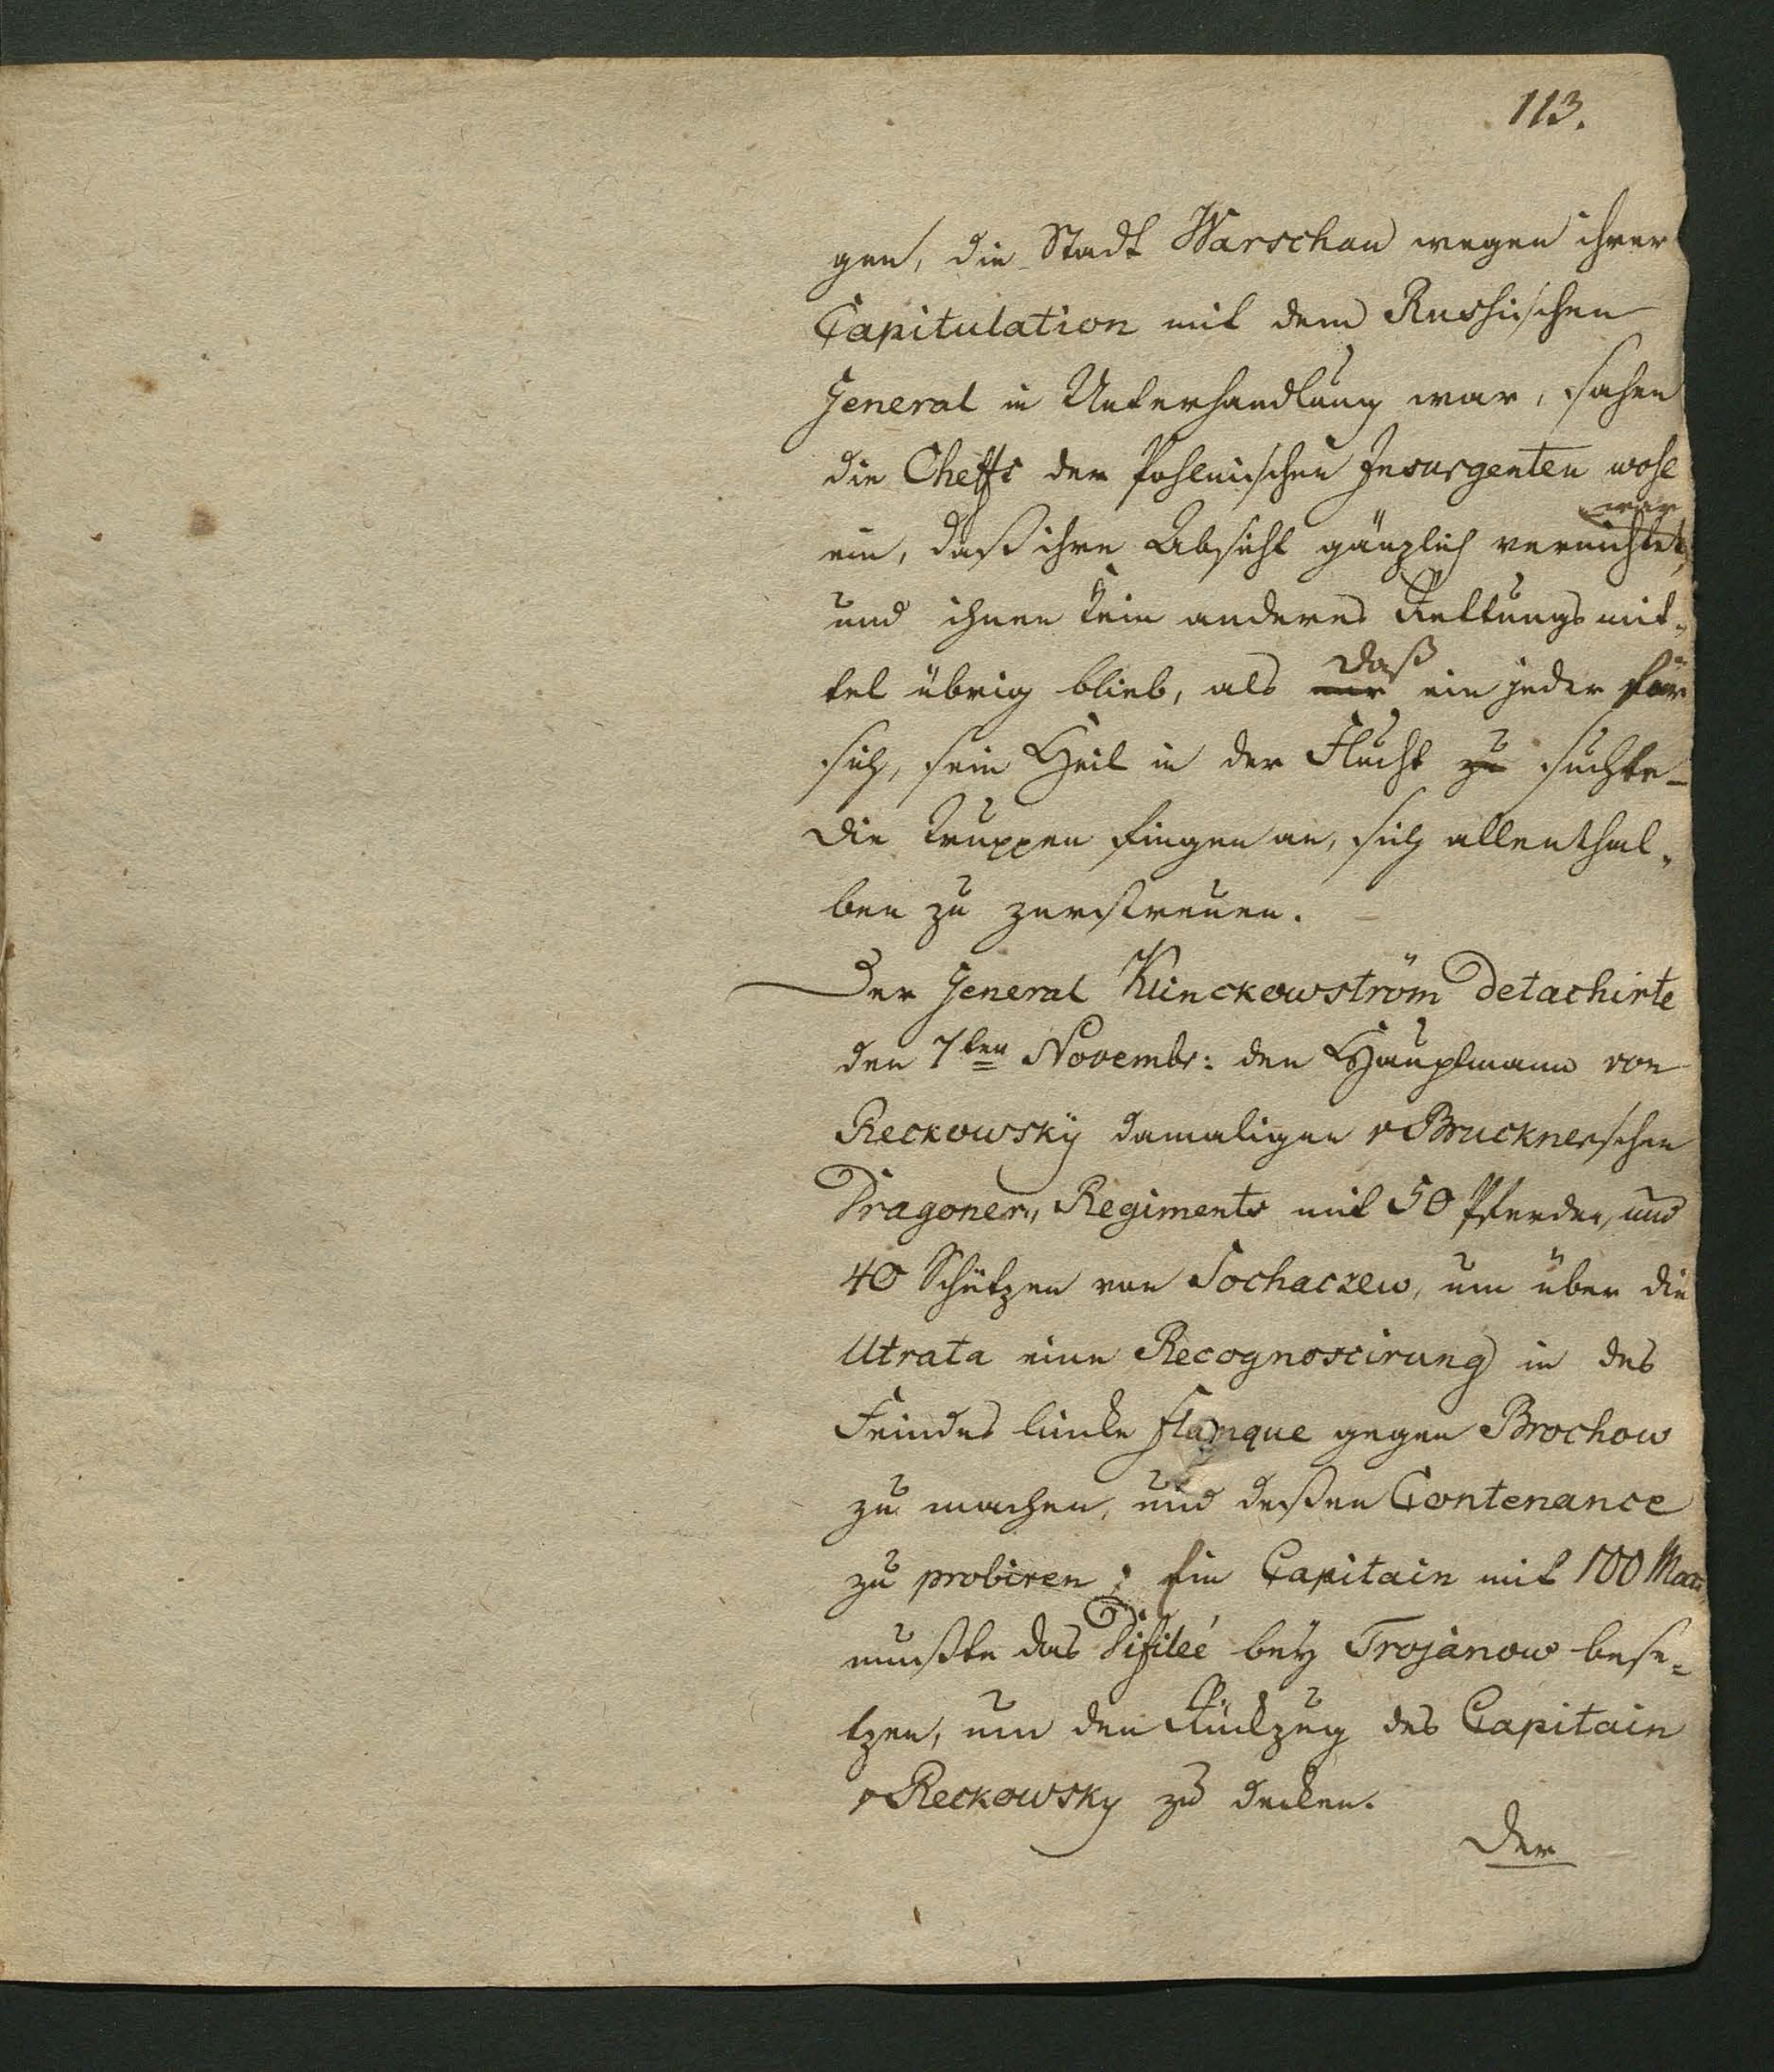 113.
gen, die Stadt Warschau wegen ihrer
Capitulation mit dem Russischen
General in Unterhandlung war, sahen
die Cheffs der Pohlnischen Insurgenten wohl
war
ein, daß ihre Absicht gänzlich vernichtet,
und ihnen kein anderes Rettungsmit„
daß
tel übrig blieb, als nur ein jeder für
sich, sein Heil in der Flucht zu suchte_
die Truppen fingen an, sich allenthal„
ben zu zerstreuen.
Der General Klinckowström detachirte
den 7ten Novembr: den Hauptmann von
Reckowsky damaligen v Brucknerschen
Dragoner„ Regiments mit 50 Pferden, und
40 Schützen von Sochaczew, um über die
Utrata eine Recognoscirung in des
Feindes linke Flanque gegen Brochow
zu machen, und deßen Contenance
zu probiren; Ein Capitain mit 100 Mann
mußte das Difileé bey Trojanow bese„
tzen, um den Rückzug des Capitain
v Reckowsky zu decken.
Der